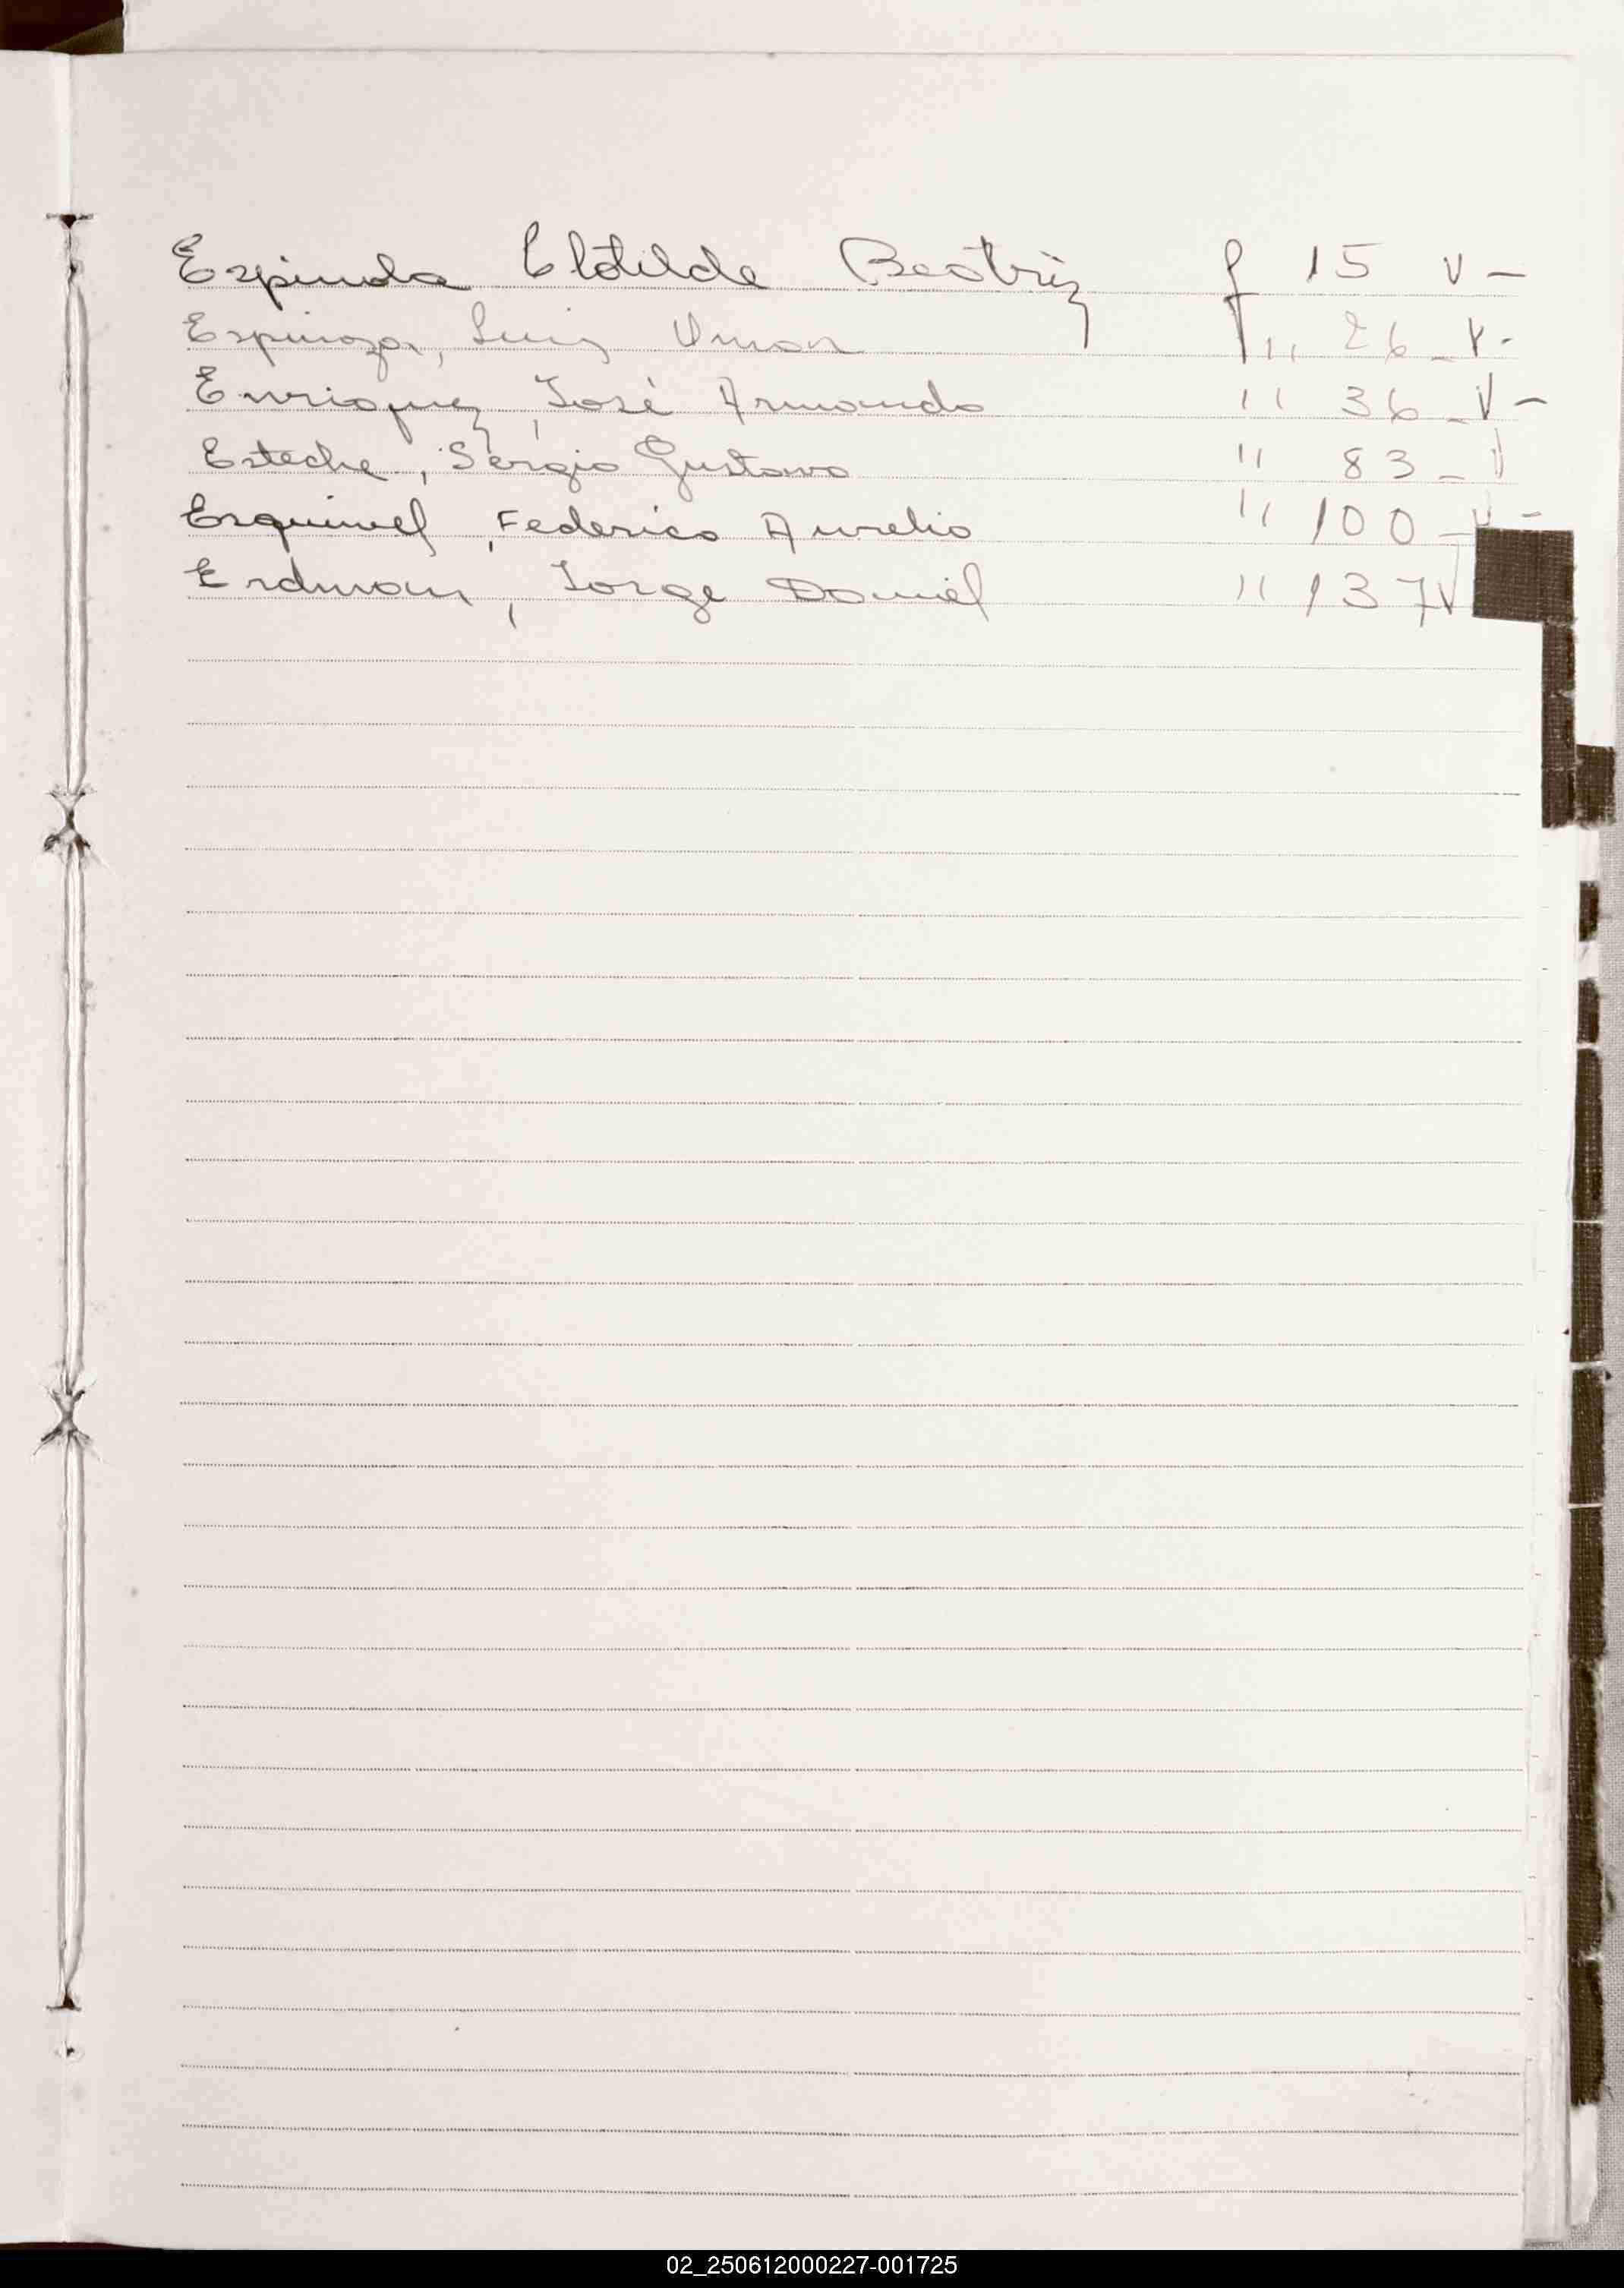 Espindola Clotilde Beatriz f 15 v -
Espinoza, Luis Omar " 26 - v -
Enriquez, José Armando " 36 - V -
Esteche, Sergio Gustavo " 83 - V
Esquivel, Federico Aurelio " 100 - v -
Erdman, Jorge Daniel " 137 V
02_250612000227-001725